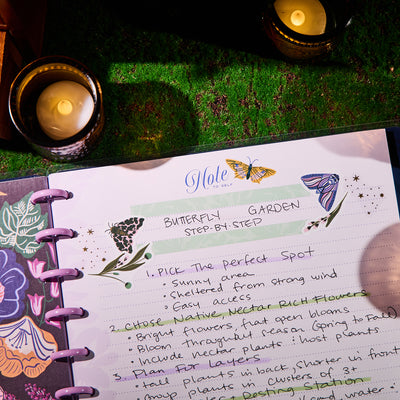 Note
TO SELF
BUTTERFLY GARDEN
STEP-BY-STEP
1. PICK The perfect Spot
• Sunny area
• Sheltered from strong wind
• Easy access
2. CHOSE Native, Nectar Rich Flowers
• Bright flowers, flat open blooms
• Bloom throughout season (spring to Fall)
• Include nectar plants + host plants
3. Plan For Layers
• tall plants in back, shorter in front
• Group plants in clusters of 3+
Destiny Station
sand, water +